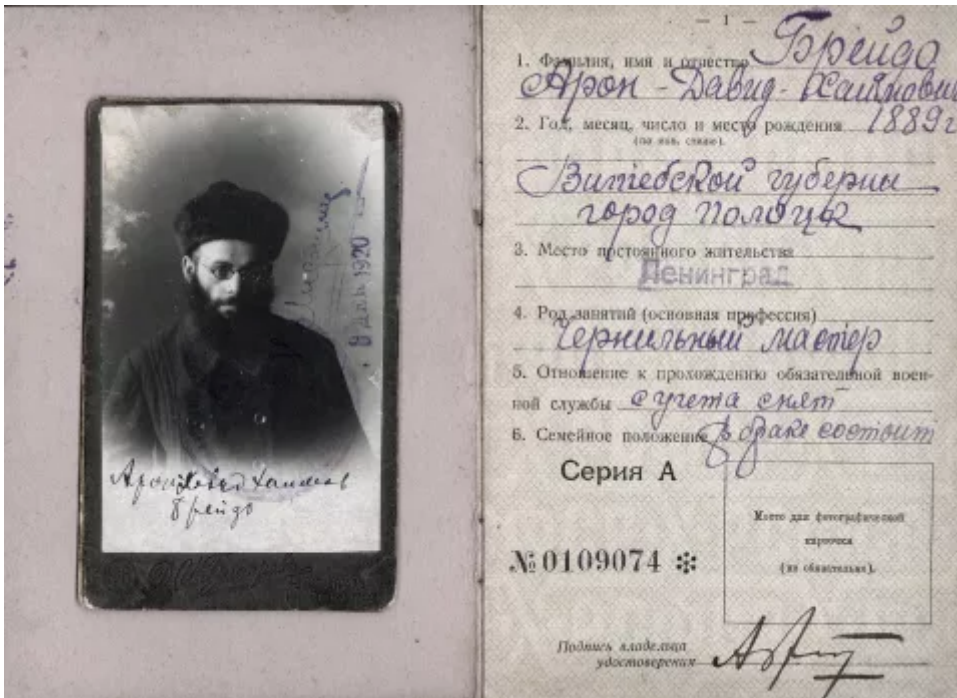 9 дек 1920
Арон Давид Хаимов
Брейдо
— 1 —
1. Фамилия, имя и отчество Брейдо
Арон-Давид-Хаимович
2. Год, месяц, число и место рождения 1889 г
(по нов. стилю).
Витебской губерны
город Полоцк
3. Место постоянного жительства
Ленинград
4. Род занятий (основная профессия)
Чернильный мастер
5. Отношение к прохождению обязательной воен-
ной службы с учета снят
6. Семейное положение в браке состоит
Серия А
Место для фотографической
карточки
(не обязательно).
№ 0109074 ✻
Подпись владельца
удостоверения